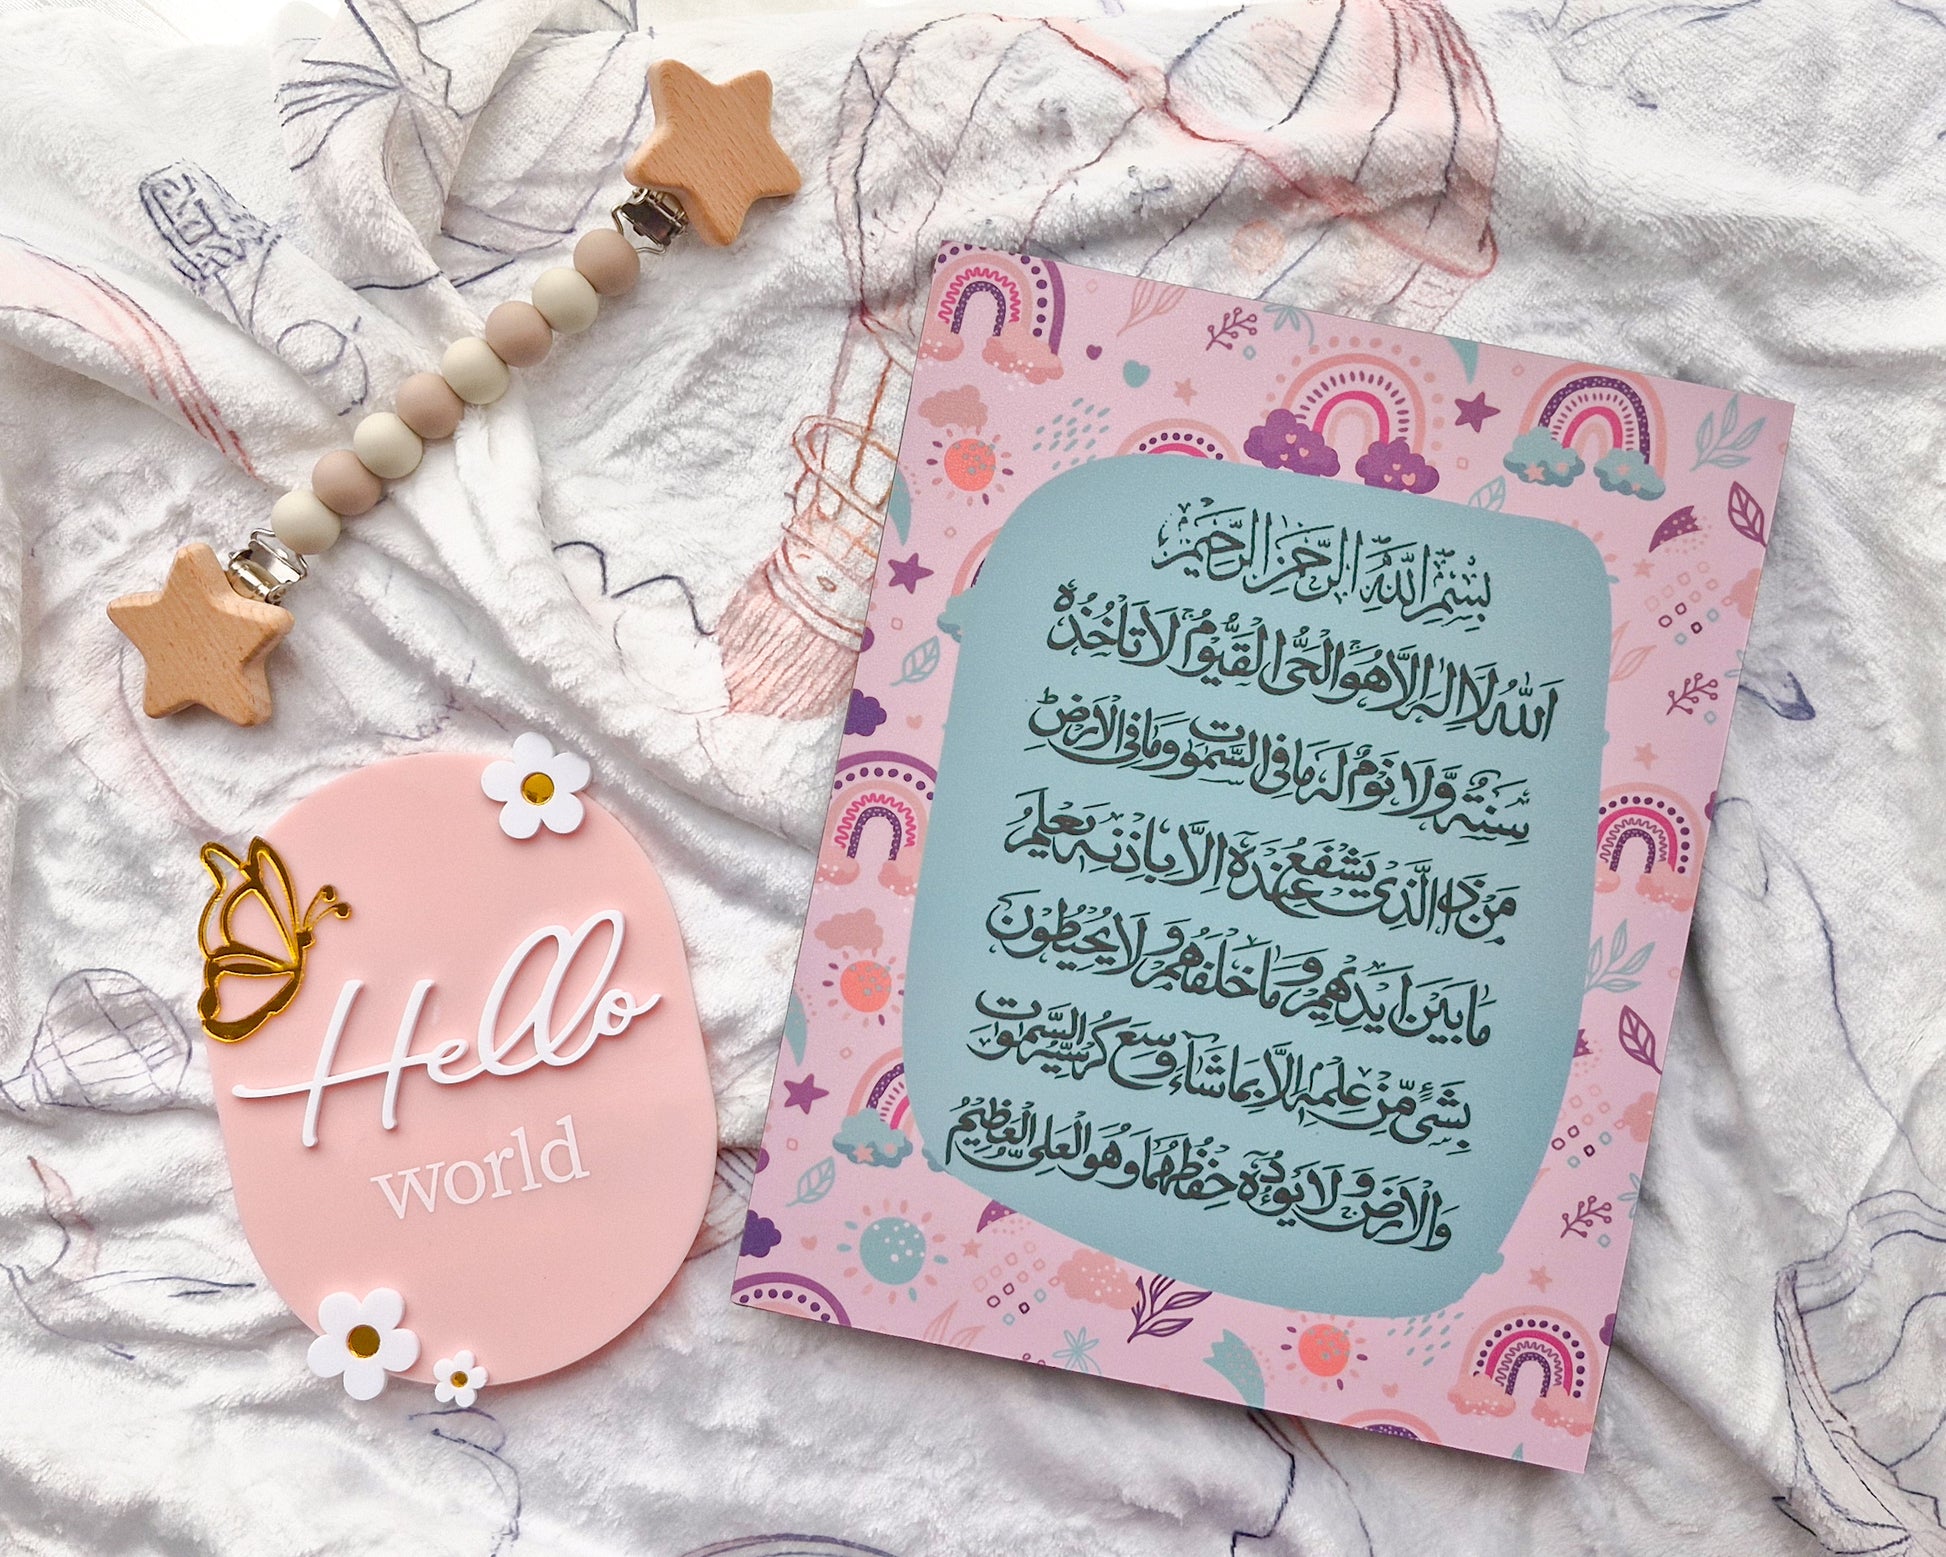 Hello
world
بِسْمِ اللّٰهِ الرَّحْمٰنِ الرَّحِيْمِ
اَللّٰهُ لَا اِلٰهَ اِلَّا هُوَ الْحَيُّ الْقَيُّوْمُ لَا تَاْخُذُهٗ
سِنَةٌ وَّلَا نَوْمٌ لَهٗ مَا فِى السَّمٰوٰتِ وَمَا فِى الْاَرْضِ
مَنْ ذَا الَّذِىْ يَشْفَعُ عِنْدَهٗ اِلَّا بِاِذْنِهٖ يَعْلَمُ
مَا بَيْنَ اَيْدِيْهِمْ وَمَا خَلْفَهُمْ وَلَا يُحِيْطُوْنَ
بِشَىْءٍ مِّنْ عِلْمِهٖ اِلَّا بِمَا شَآءَ وَسِعَ كُرْسِيُّهُ السَّمٰوٰتِ
وَالْاَرْضَ وَلَا يَـُٔوْدُهٗ حِفْظُهُمَا وَهُوَ الْعَلِىُّ الْعَظِيْمُ